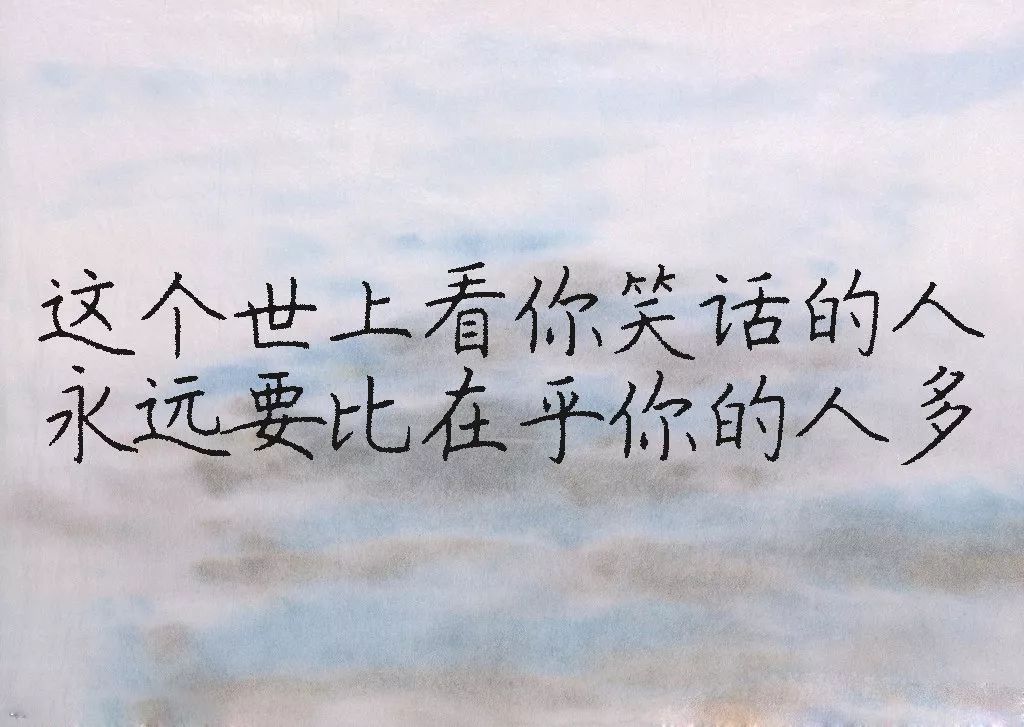 这个世上看你笑话的人
永远要比在乎你的人多